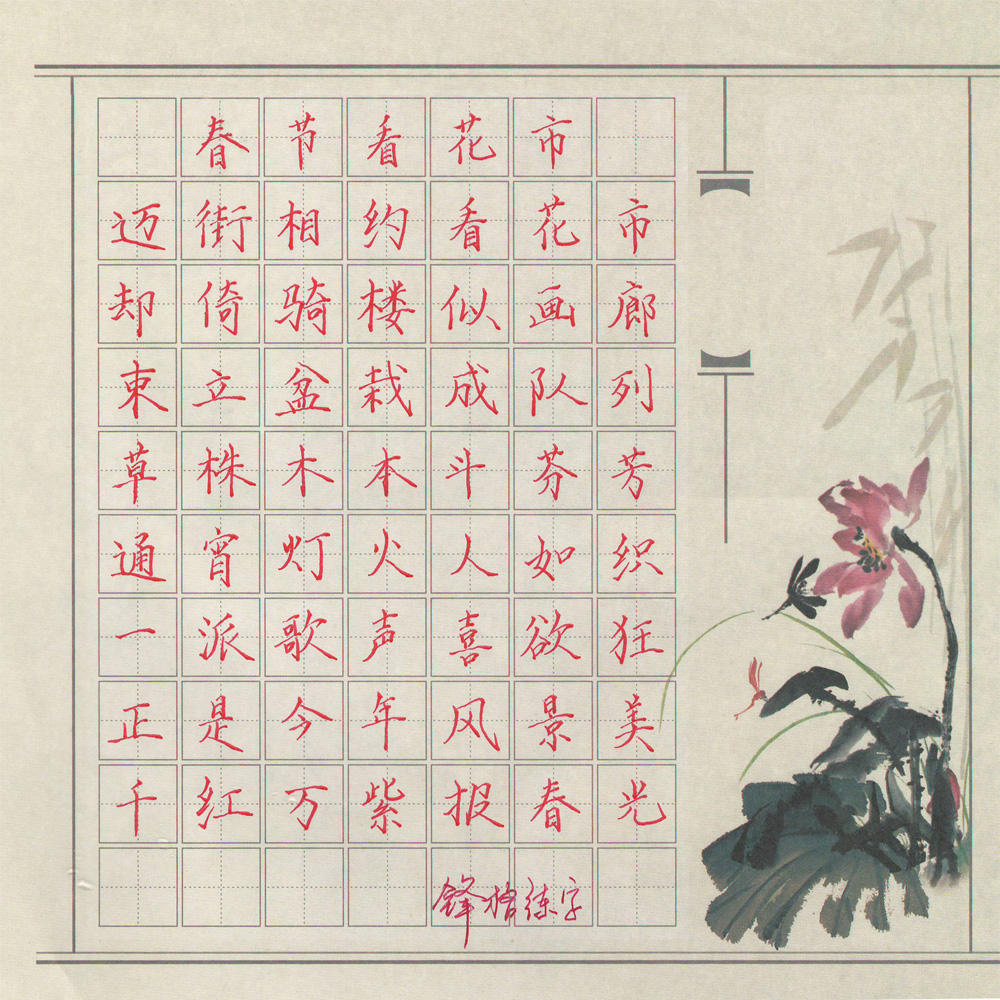 春节看花市
迈街相约看花市
却倚骑楼似画廊
束立盆栽成队列
草株木本斗芬芳
通宵灯火人如织
一派歌声喜欲狂
正是今年风景美
千红万紫报春光
锋格练字